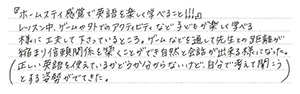 『ホームステイ感覚で英語を楽しく学べること!!!』
レッスン中、ゲームや外でのアクティビティなど子どもが楽しく学べる
様に工夫して下さっているところ。ゲームなどを通して先生との距離が
縮まり信頼関係を築くことができ自然と会話が出来る様になった。
(正しい英語を使えているかどうか分からないけど、自分で考えて闘おう
とする姿勢ができてきた。)